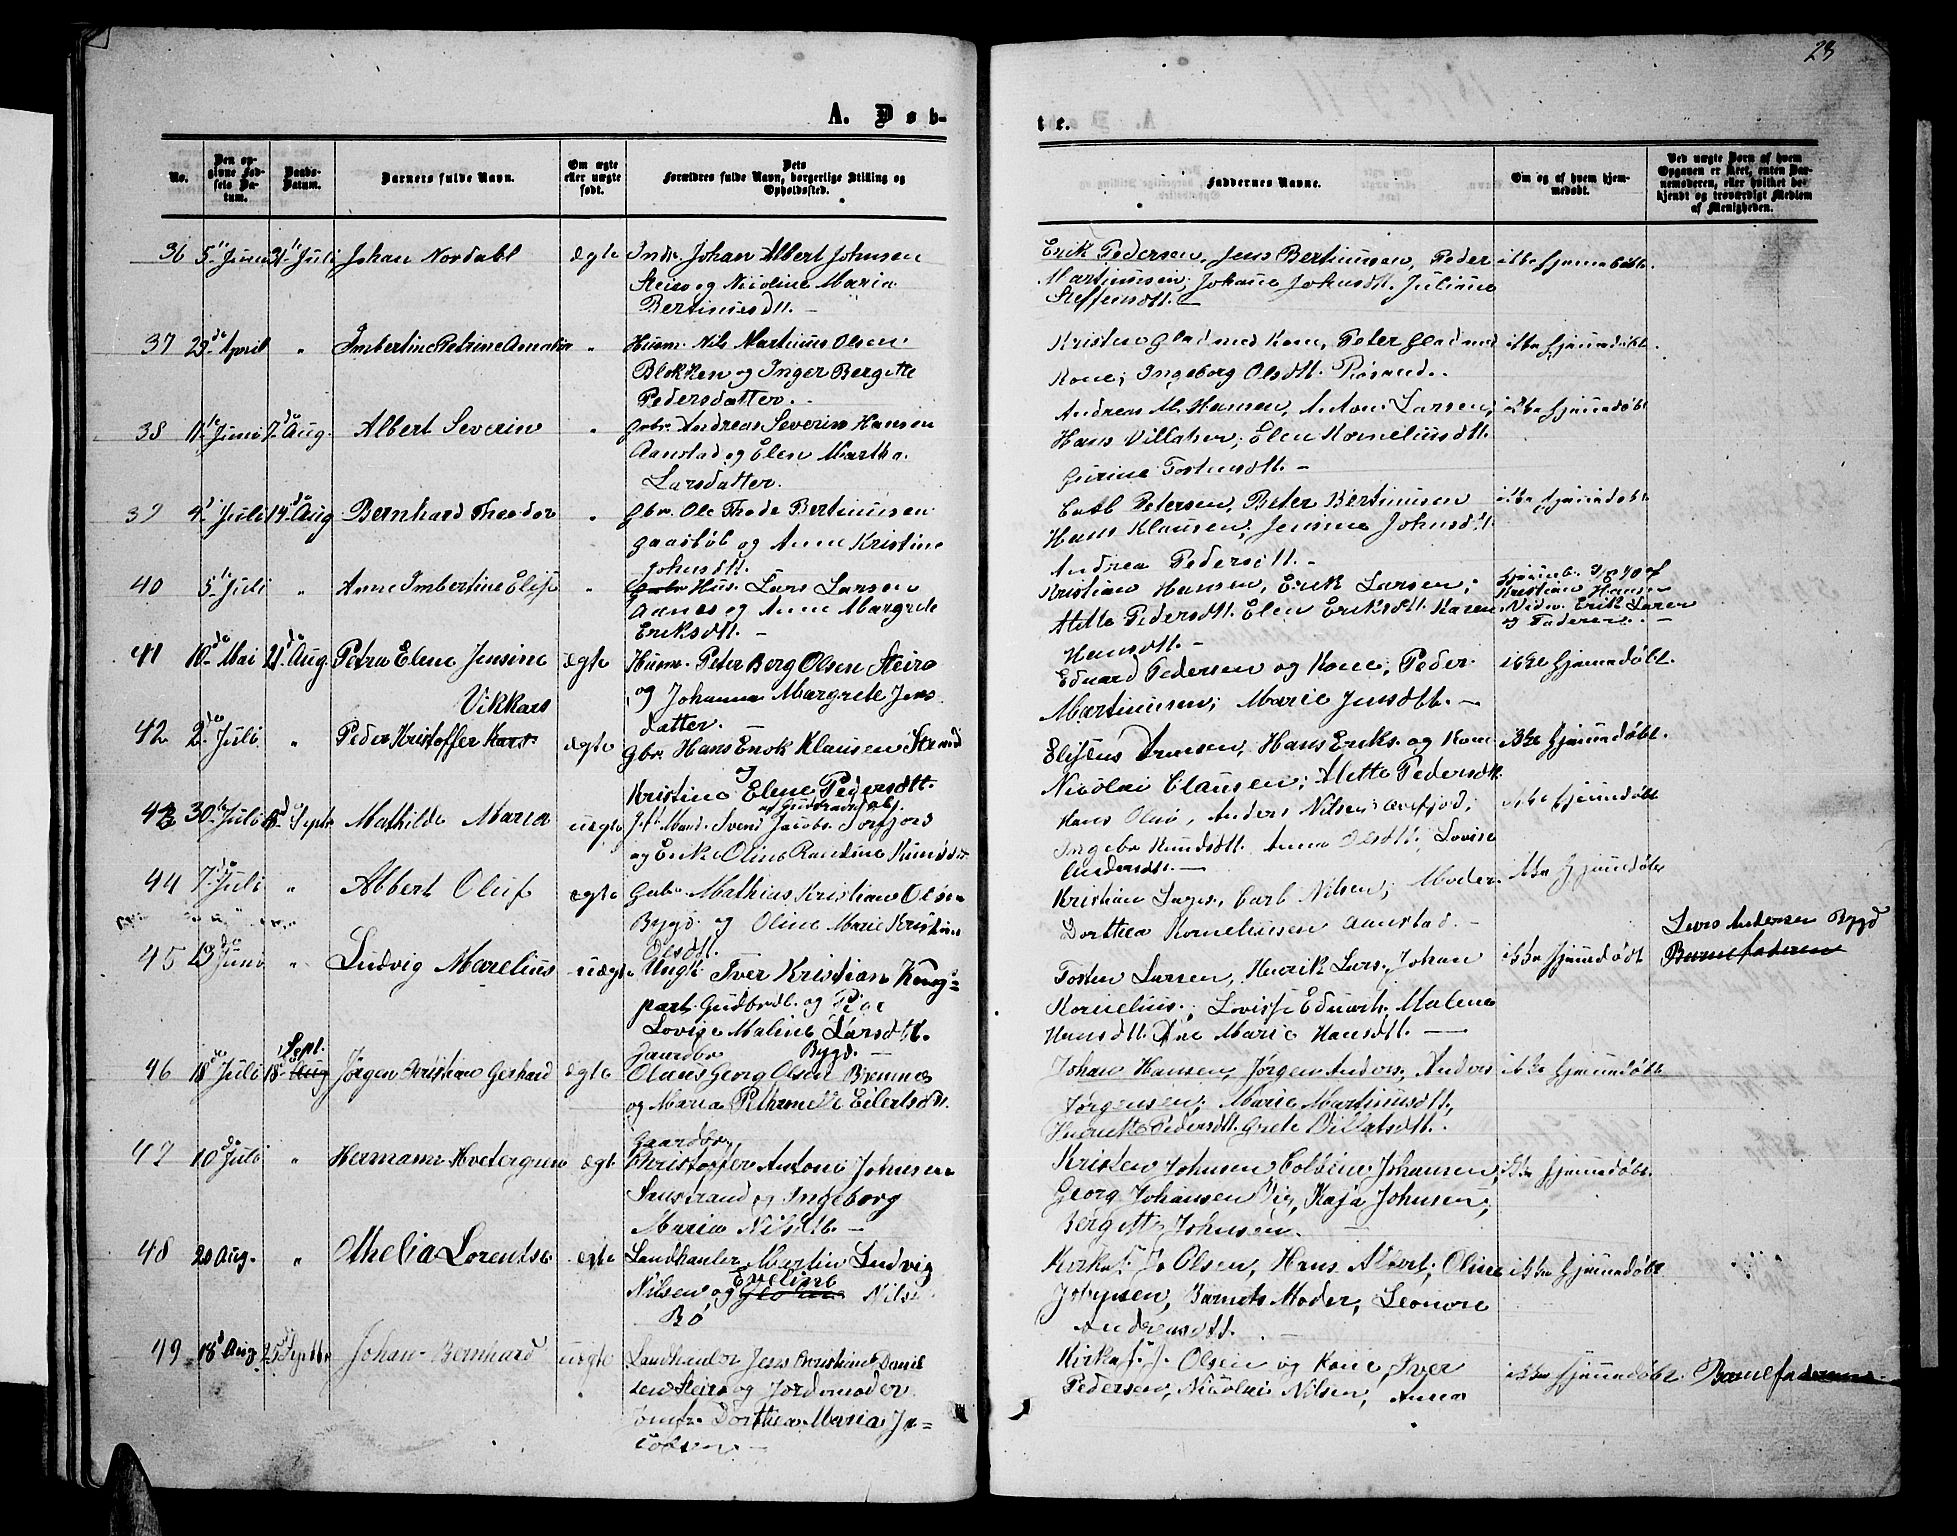 23
A. Døb-
te.
No.
Den opgivne Fødsels Datum.
Daabs-Datum.
Barnets fulde Navn.
Om ægte eller uægte født.
Dets Forældres fulde Navn, borgerlige Stilling og Opholdssted.
Faddernes Navne.
Om og af hvem hjemmedøbt.
Ved uægte Børn af hvem Opgaven er skeet, enten Barnemoderen, eller hvilket bekjendt og troværdigt Medlem af Menigheden.
36 5te Juni 31te Juli Johan Nordahl ægte Inds. Johan Albert Johnsen
Steiro og Nicoline Maria
Bertinusdtt.
Erik Pedersen, Jens Bertinussen, Peder ikke hjemmedøbt.
Martinussen, Johanne Johnsdtt. Juliane
Steffensdtt.
37 April " Imbertine Petrine Amalia " Husm. Nils Martinus Olsen
Blokken og Inger Bergitte
Pedersdatter.
Kristen Glad med Kone, Peter Glad med ikke hjemmedøbt.
Kone; Ingeborg Olsdtt.
38 11te Juni 7de Aug. Albert Severin " Gbr. Andreas Severin Hansen
Aanstad og Elen Martha
Larsdatter.
Andreas M. Hansen, Anton Larsen, ikke hjemmedøbt
Hans Villatsen, Elen Kornelinsdtt.
Gurine Tostensdtt.
39 Juli 14de Aug. Bernhard Theodor " Gbr. Ole Thode Bertinussen
Gaasbøl og Anne Kristine
Johnsdtt.
Petersen, Peter Bertinussen ikke hjemmedøbt
Hans Klausen, Johnsdtt.
Andrea Pedersdtt.
40 5te Juli " Anne Imbertine Elise " Hus. Lars Larsen
Aanes og Anne Margrete
Eriksdtt.
Kristian Hansen, Erik Larsen,
Mette Pedersdtt. Elen Eriksdtt. Karen
Hansdtt.
Kristian Hansen
Erik Larsen
og Faderen.
41 10de Mai 21de Aug. Petra Elene Jensine ægte Husm. Peter Berg Olsen Steiro
og Johanna Margrete Jens
datter.
Eduard Pedersen og Kone, Peder ikke hjemmedøbt.
Martinussen; Marie Jensdtt.
Vikkars
42 2de Juli " Peder Kristoffer ægte Gbr. Hans Enok Klausen Strand
og
Kristine Elene Pedersdtt.
Hansen, Hans Eriks. og Kone ikke hjemmedøbt.
Nicolai Clausen, Mette Pedersdtt.
43 30te Juli Septr Mathilde Maria uægte Svend Jacobs.
og Enke Oline Randine
Hans Anders Nilsen ikke hjemmedøbt
Knudsdtt. Anna Olsdtt., Lovise
Andersdtt.
44 7de Juli " Albert Oluf ægte Gbr. Mathias Kristian Olsen
Bygd og Oline Marie Kristine
Olsdtt.
Kristian Carl Nilsen; Moder ikke hjemmedøbt
Dorthea Korneliussen Aanstad.
45 Juni " Ludvig Marelius uægte Ungk. Iver Kristian
Gudbrdl. og Pige
Lovise Maline Larsdtt.
Bygd.
Tosten Larsen, Henrik Lars., Johan ikke hjemmedøbt
Kornelius., Lovise Eduards, Malene
Hansdtt. Ane Marie Hansdtt.
Lars Andersen Bygd
Barnefaderen
Sept.
46 18de Juli 18 Aug Jørgen Kristian Gerhard ægte Gaardbr
Olaus Georg Olsen Bremnes
og Maria Pethrnelle Eilertsdtt.
Johan Hansen, Jørgen Anders., Anders ikke hjemmedøbt
Jørgensen; Marie Martinusdtt,
Henriette Pedersdtt. Grete Villatsdtt.
47 10de Juli " Hermann Hvetergren ægte Gaardbr.
Kristoffer Antoni Johnsen
Sandstrand og Ingeborg
Maria Nilsdtt.
Kristen Johnsen Johansen, ikke hjemmedøbt.
Georg Johansen Kaja Johnsen,
Bergitte Johnsen.
48 20 Aug. " Othelia Lorentse ægte Landhanler Martin Ludvig
Eveline
Nilsen og Nils
Bø
Kirkes. J. Olsen, Hans Albert, Oline ikke hjemmedøbt
Barnets Moder, Leonore
Andreasdtt.
49 18de Aug. 25de Septbr Johan Bernhard uægte Landhanler Jens Kristian Daniel
sen Steiro og Jordemoder
Jomfr. Dorthea Maria Ja=
cobsen
Kirkes. J. Olsen og Kone, Iver ikke hjemmedøbt. Barnefaderen
Pedersen, Nicolai Nilsen, Anna